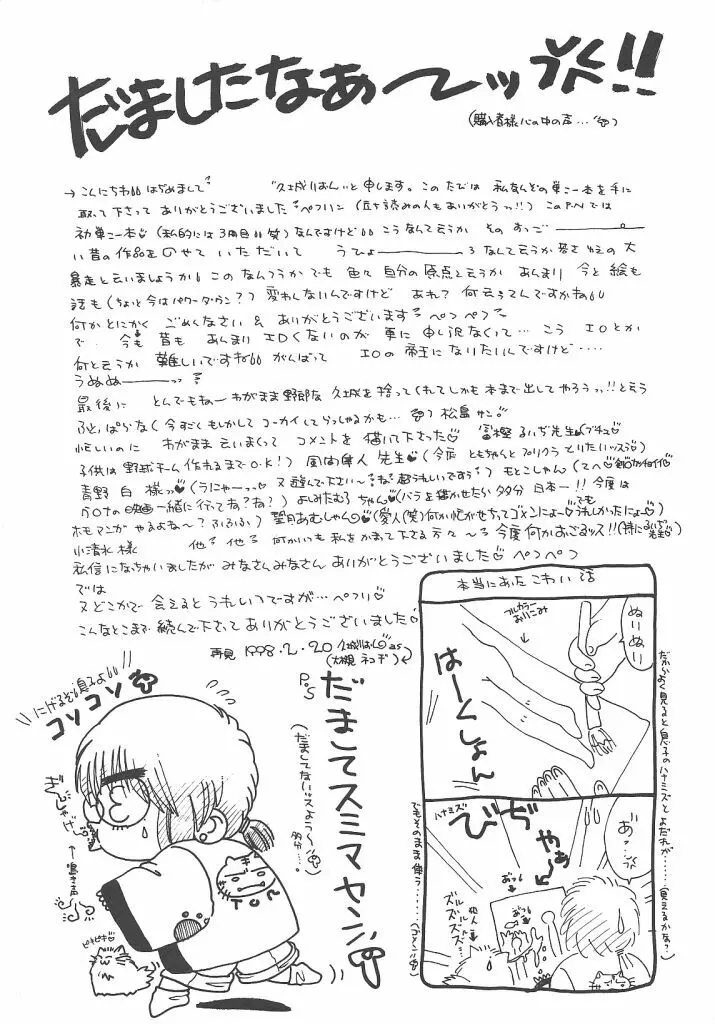 だましたなぁ〜ッ!!
(購入者様心の中の声…)
→こんにちわ はぢめまして "久城りおん"と申します。このたびは 私なんぞの単こー本を手に
取って下さって ありがとうございました ペフリン (立ち読みの人もありがとうっ!!) このP.Nでは
初単こー本 (私的には3冊目 笑) なんですけど こうなんて云うか そのすっご———
い昔の作品を のせて いただいて うひょ———ろ なんて云うか 若さゆえの大
暴走と云いましょうか このなんつうか でも 色々 自分の原点と云うか あんまり 今と絵も
話も (ちょっと今はパワーダウン?) 変わんないんですけど あれ? 何云ってんですかね
何かとにかく ごめんなさい & ありがとうございます ペコペコ
で 今も昔も あんまり エロくないのが 更に 申し訳なくって… こう エロとか
何と云うか 難しいですね がんばって エロの帝王になりたいんですけど‥‥
うぬぬ———っっ
最後に とんでもねー わがまま野郎な 久城を拾ってくれてしかも本まで出してやろうっ!!と云う
ふとっぱらな 今すごくもしかして コーカイしてらっしゃるかも… 松島サン
忙しいのに わがまま云いまくって コメントを 描いて下さった 富樫るいぢ先生 (ブチュ
子供は野球チーム作れるまでO.K!) 風間隼人 先生 (今度 ともちゃんとプリクラとりたいッスう)
青野 白 様っ (うにゃーっ 又遊んで下さい〜ね 超うれしいですぅ) もとこしゃん (てへ
一緒に行ってね?ね?) よしみたむろちゃん (バラを描かせたら多分日本一!! 今度は
ホモマンガ やるよね〜? ふふふ) 望月あむしゃん (愛人(笑)何か忙がせちってゴメンにょー でもうれしかったにょー)
小清水様 他 他 何かいも私をかまって下さる方々〜 今度何かおごるッス!! (特にるいぢ先生)
私信になっちゃいましたが みなさんみなさん ありがとうございました ペコペコ
では
又どこかで 会えるとうれしいですが… ペフリ
こんなとこまで 読んで下さって ありがとうございました
再見 1998.2.20 久城りおん as
(大槻 ネコヂ)
P.S
だましてスミマセン
(だましてないッスよう〜 多分…。)
にげるぞ息子よ
コソコソ
ぎんじゃげー
←鳴き声
ピキピキ
TOM
本当にあった こわい話
フルカラー
おりこみ
ぬりぬり
はーくしょん
だからよく見ると息子のハナミズとよだれが……(見えるかな?)
ハナミズ
びちゃぁー
あ?…
あっ
あっ
犯人
ズルズルズルズル…
でもそのまま使う……(ゴメン)